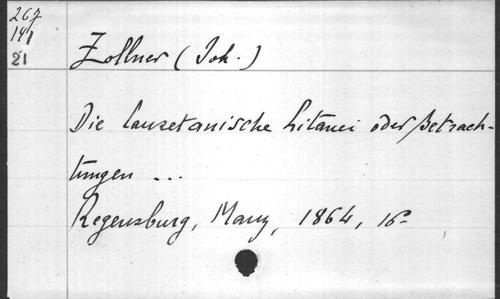 267
141
21
Zollner (Joh.)
Die lauretanische Litanei oder Betrach-
tungen ...
Regensburg, Manz, 1864, 16º